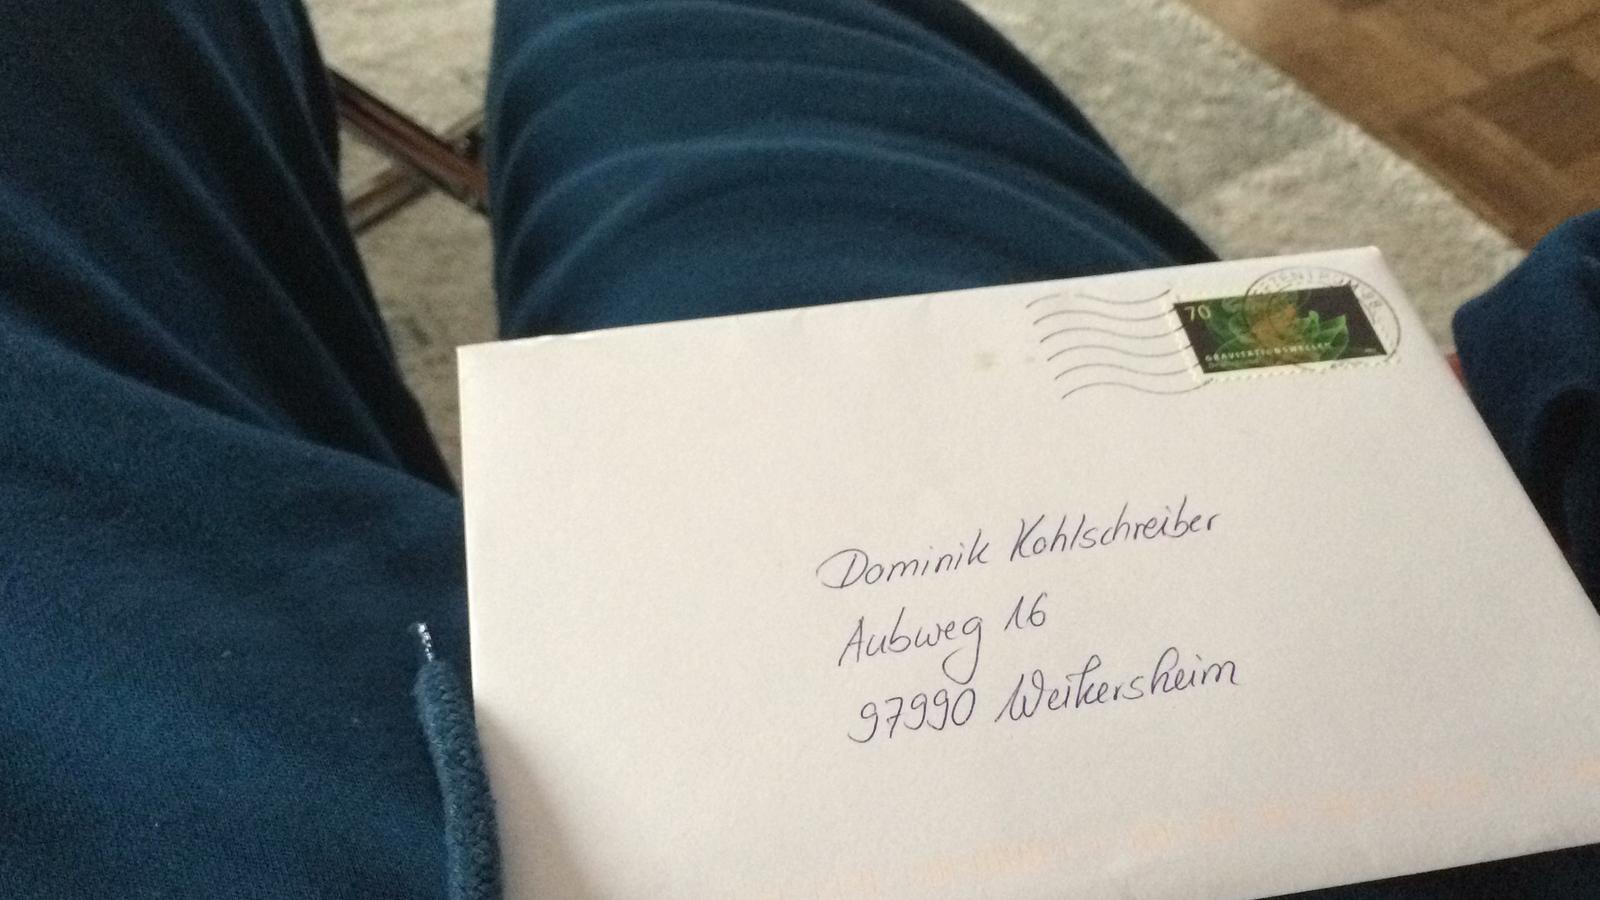 70
GRAVITATIONSWELLEN
Dominik Kohlschreiber
Aubweg 16
97990 Weikersheim